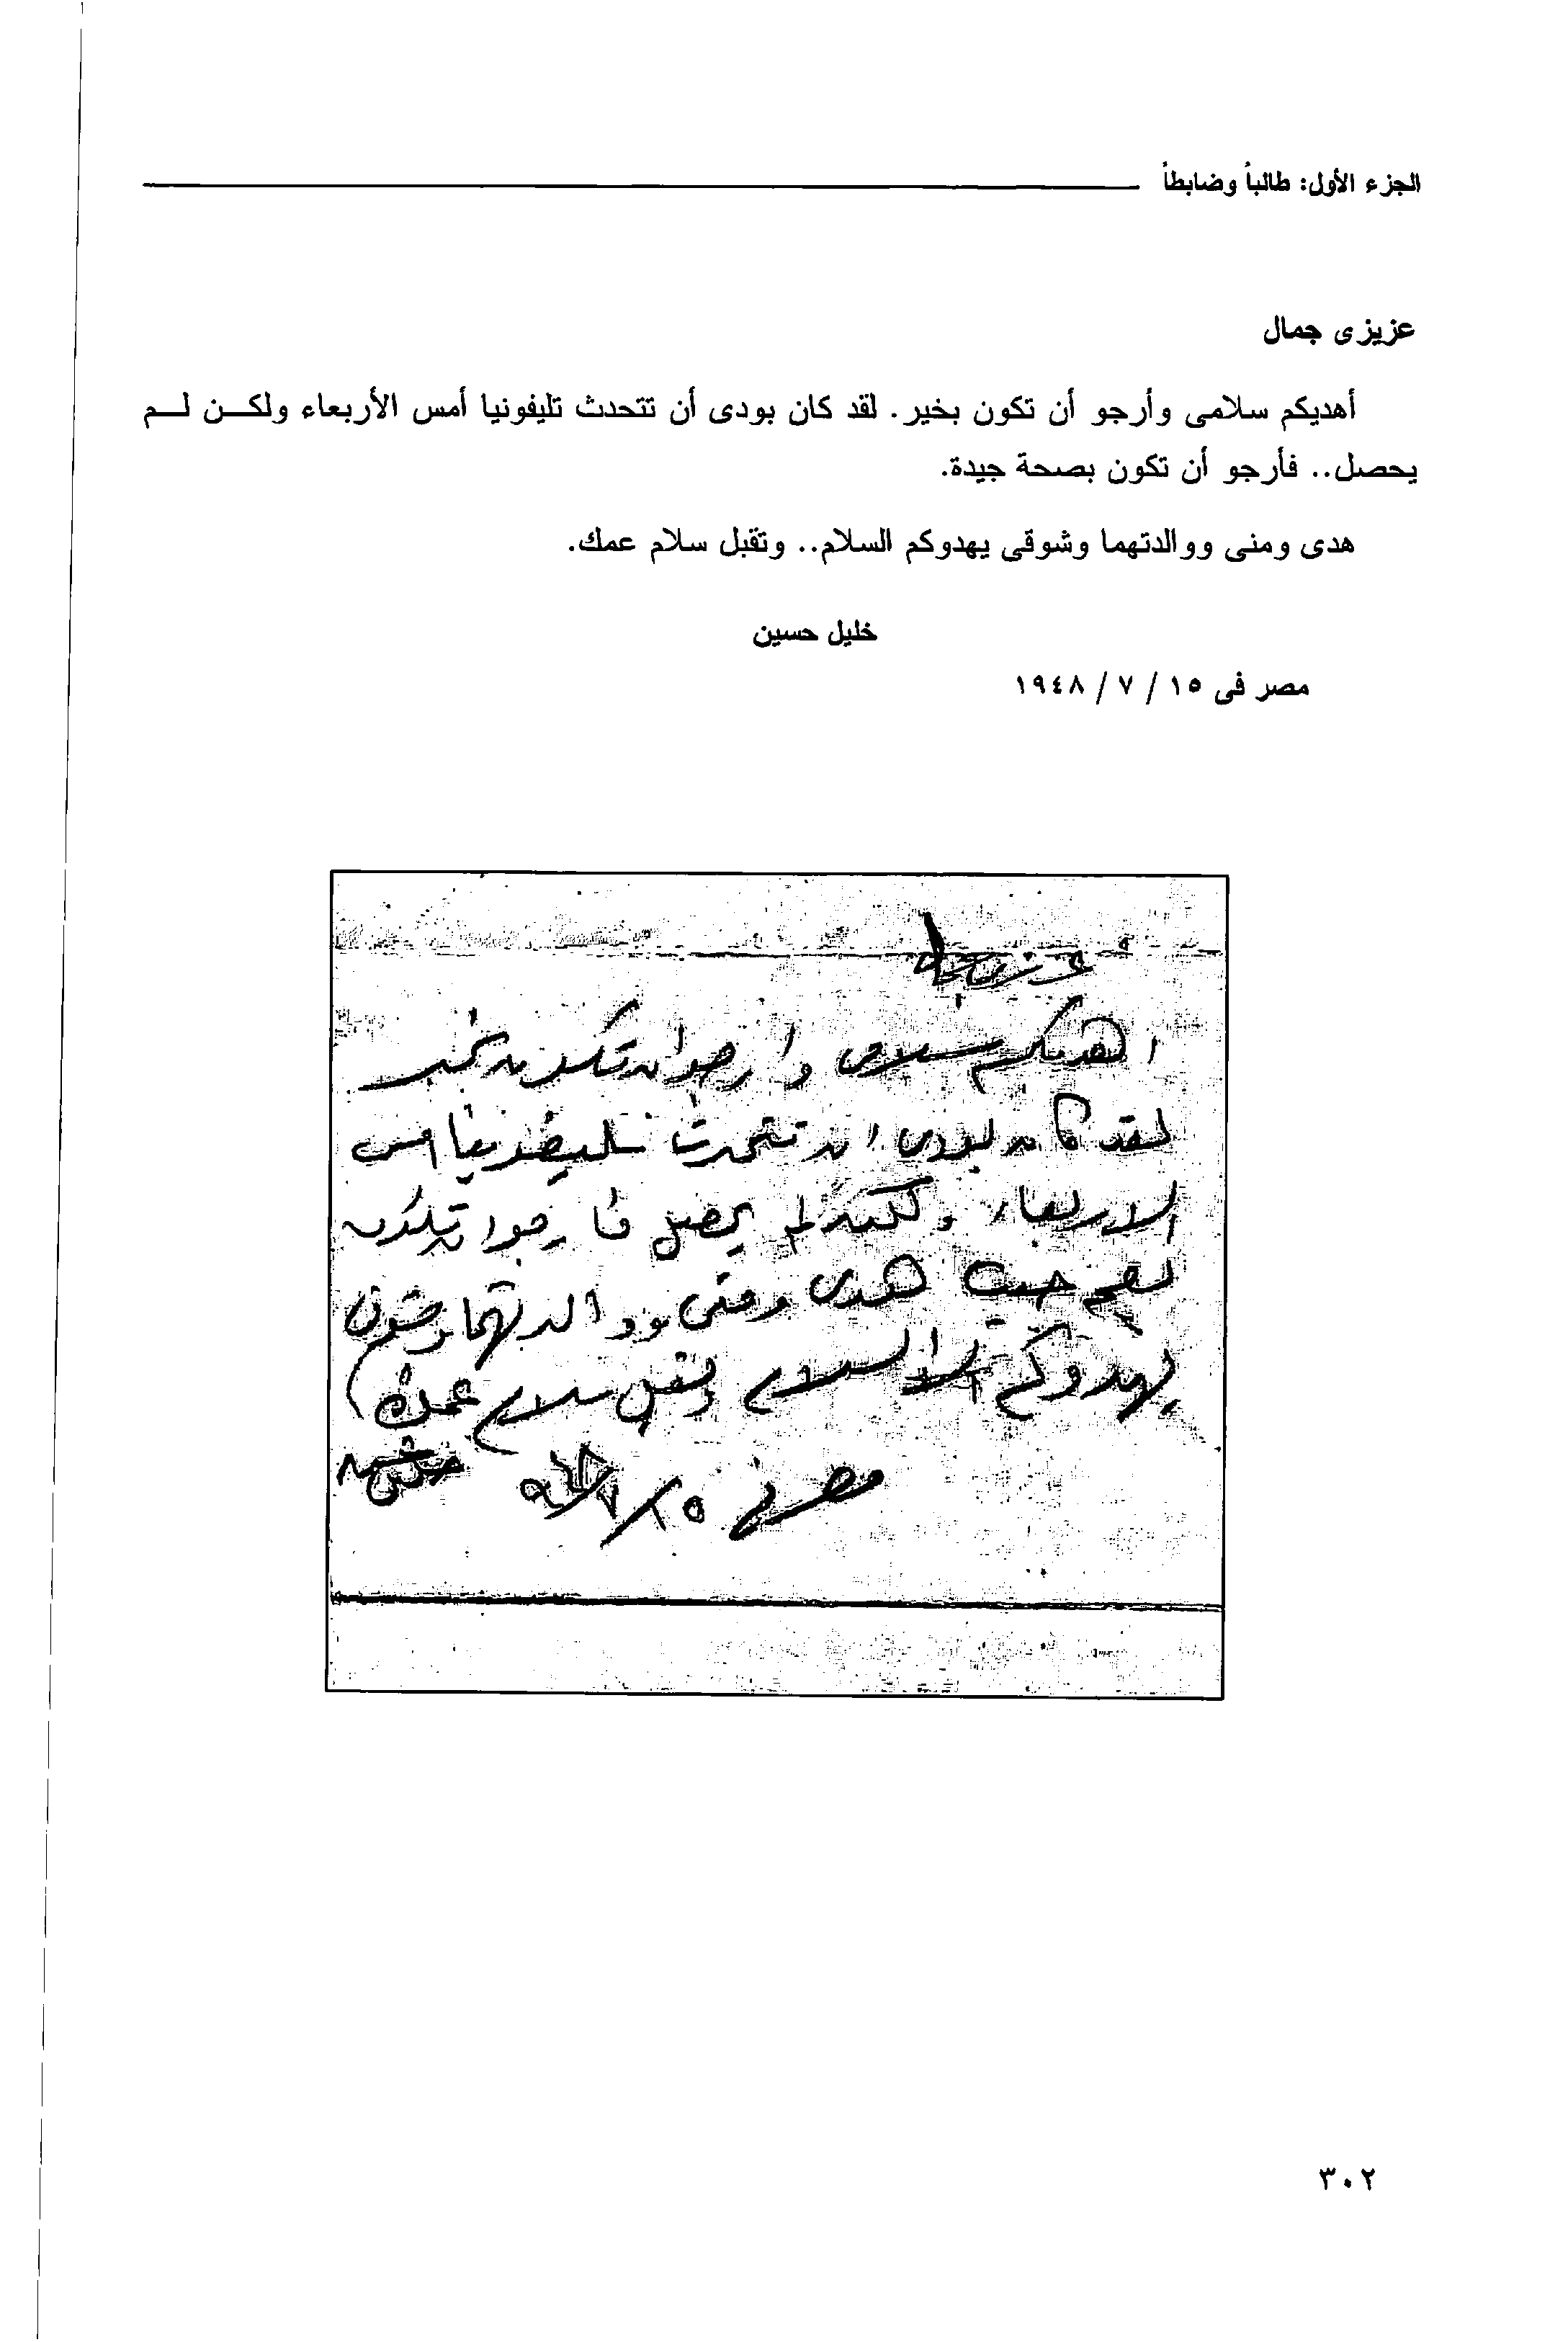 الجزء الأول: طالباً وضابطاً
عزيزى جمال
أهديكم سلامى وأرجو أن تكون بخير. لقد كان بودى أن تتحدث تليفونيا أمس الأربعاء ولكن لم
يحصل.. فأرجو أن تكون بصحة جيدة.
هدى ومنى ووالدتهما وشوقى يهدوكم السلام.. وتقبل سلام عمك.
خليل حسين
مصر فى ١٥ / ٧ / ١٩٤٨
عزيزى جمال
اهديكم سلامى وارجو ان تكون بخير
لقد كان بودى ان تتحدث تليفونيا امس
الاربعاء ولكن لم يحصل فارجو ان تكون
بصحة جيدة هدى ومنى ووالدتهما وشوقى
يهدوكم السلام وتقبل سلام عمك
خليل حسين
مصر فى ١٥/٧/٩٤٨
٣٠٢